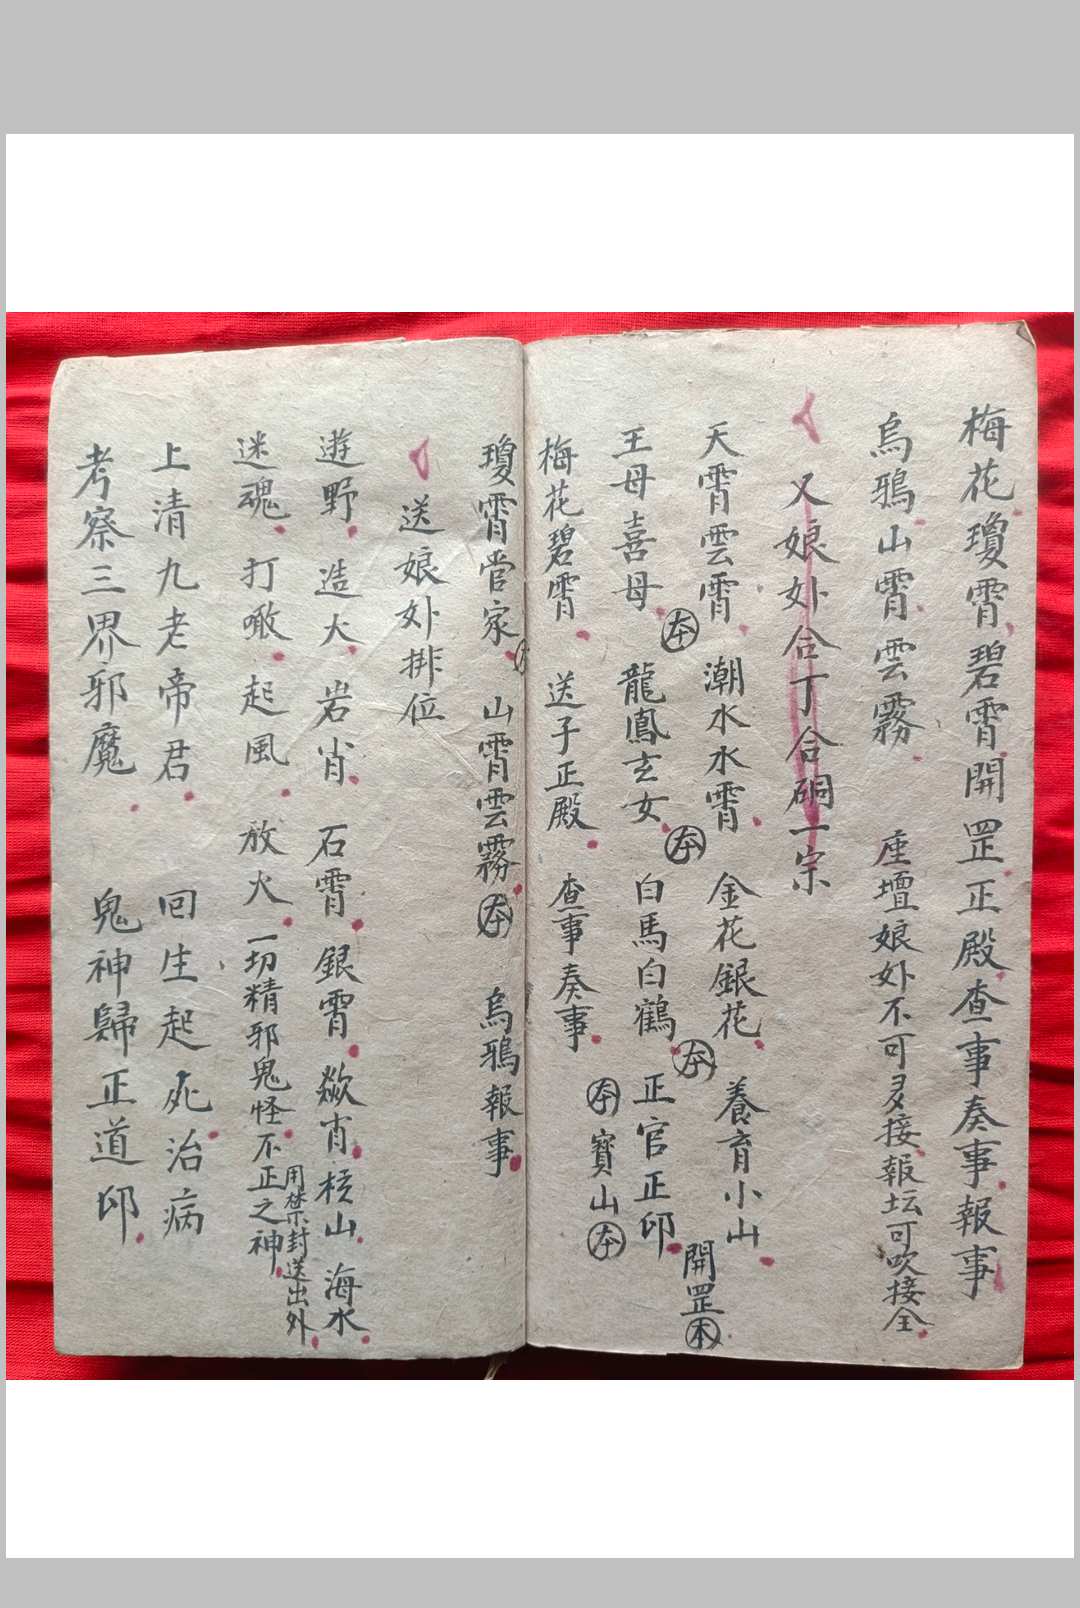 梅花瓊霄碧霄開罡正殿查事奏事報事
烏鴉山霄雲霧 座壇娘外不可多接報坛可吹接全
又娘外合丁合硐一宗
天霄雲霄 潮水水霄 金花銀花 養育小山
王母喜母 龍鳳玄女 白馬白鶴 正官正印 開罡
梅花碧霄 送子正殿 查事奏事 寶山
瓊霄當家 山霄雲霧 烏鴉報事
送娘外排位
遊野 造大 岩肖 石霄 銀霄 肖 山 海水
迷魂 打瞰 起風 放火 一切精邪鬼怪不正之神 用禁封送出外
上清九老帝君 回生起死治病
考察三界邪魔 鬼神歸正道印